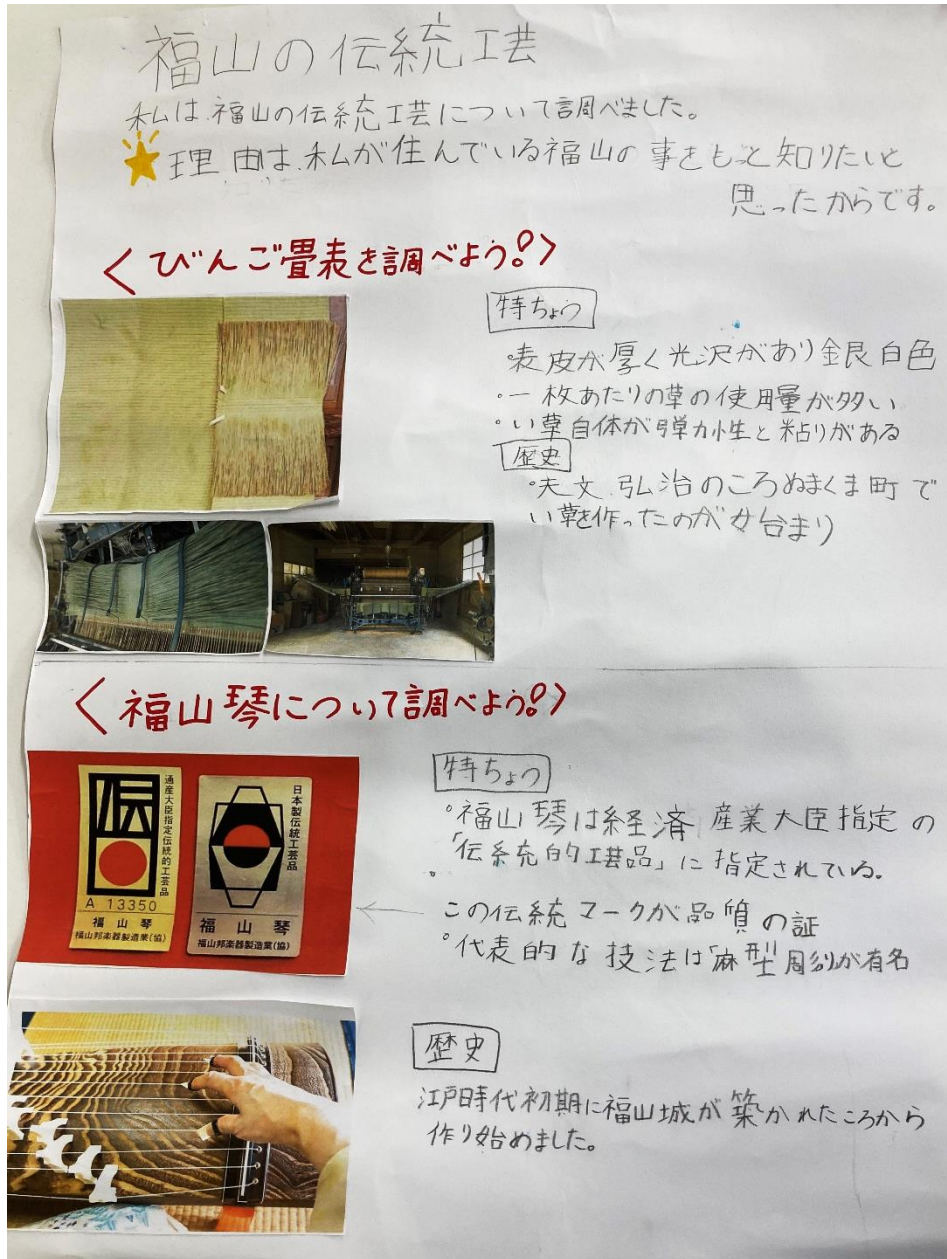 福山の伝統工芸
私は、福山の伝統工芸について調べました。
理由は、私が住んでいる福山の事をもっと知りたいと
思ったからです。
〈びんご畳表を調べよう!〉
特ちょう
・表皮が厚く光沢があり銀白色
・一枚あたりの草の使用量が多い
・い草自体が弾力性と粘りがある
歴史
・天文、弘治のころぬまくま町で
い草を作ったのが始まり
〈福山琴について調べよう!〉
伝
通産大臣指定伝統的工芸品
A 13350
福山琴
福山邦楽器製造業(協)
日本製伝統工芸品
福山琴
福山邦楽器製造業(協)
特ちょう
・福山琴は経済産業大臣指定の
「伝統的工芸品」に指定されている。
・この伝統マークが品質の証
・代表的な技法は「麻型彫刻が有名
歴史
江戸時代初期に福山城が築かれたころから
作り始めました。